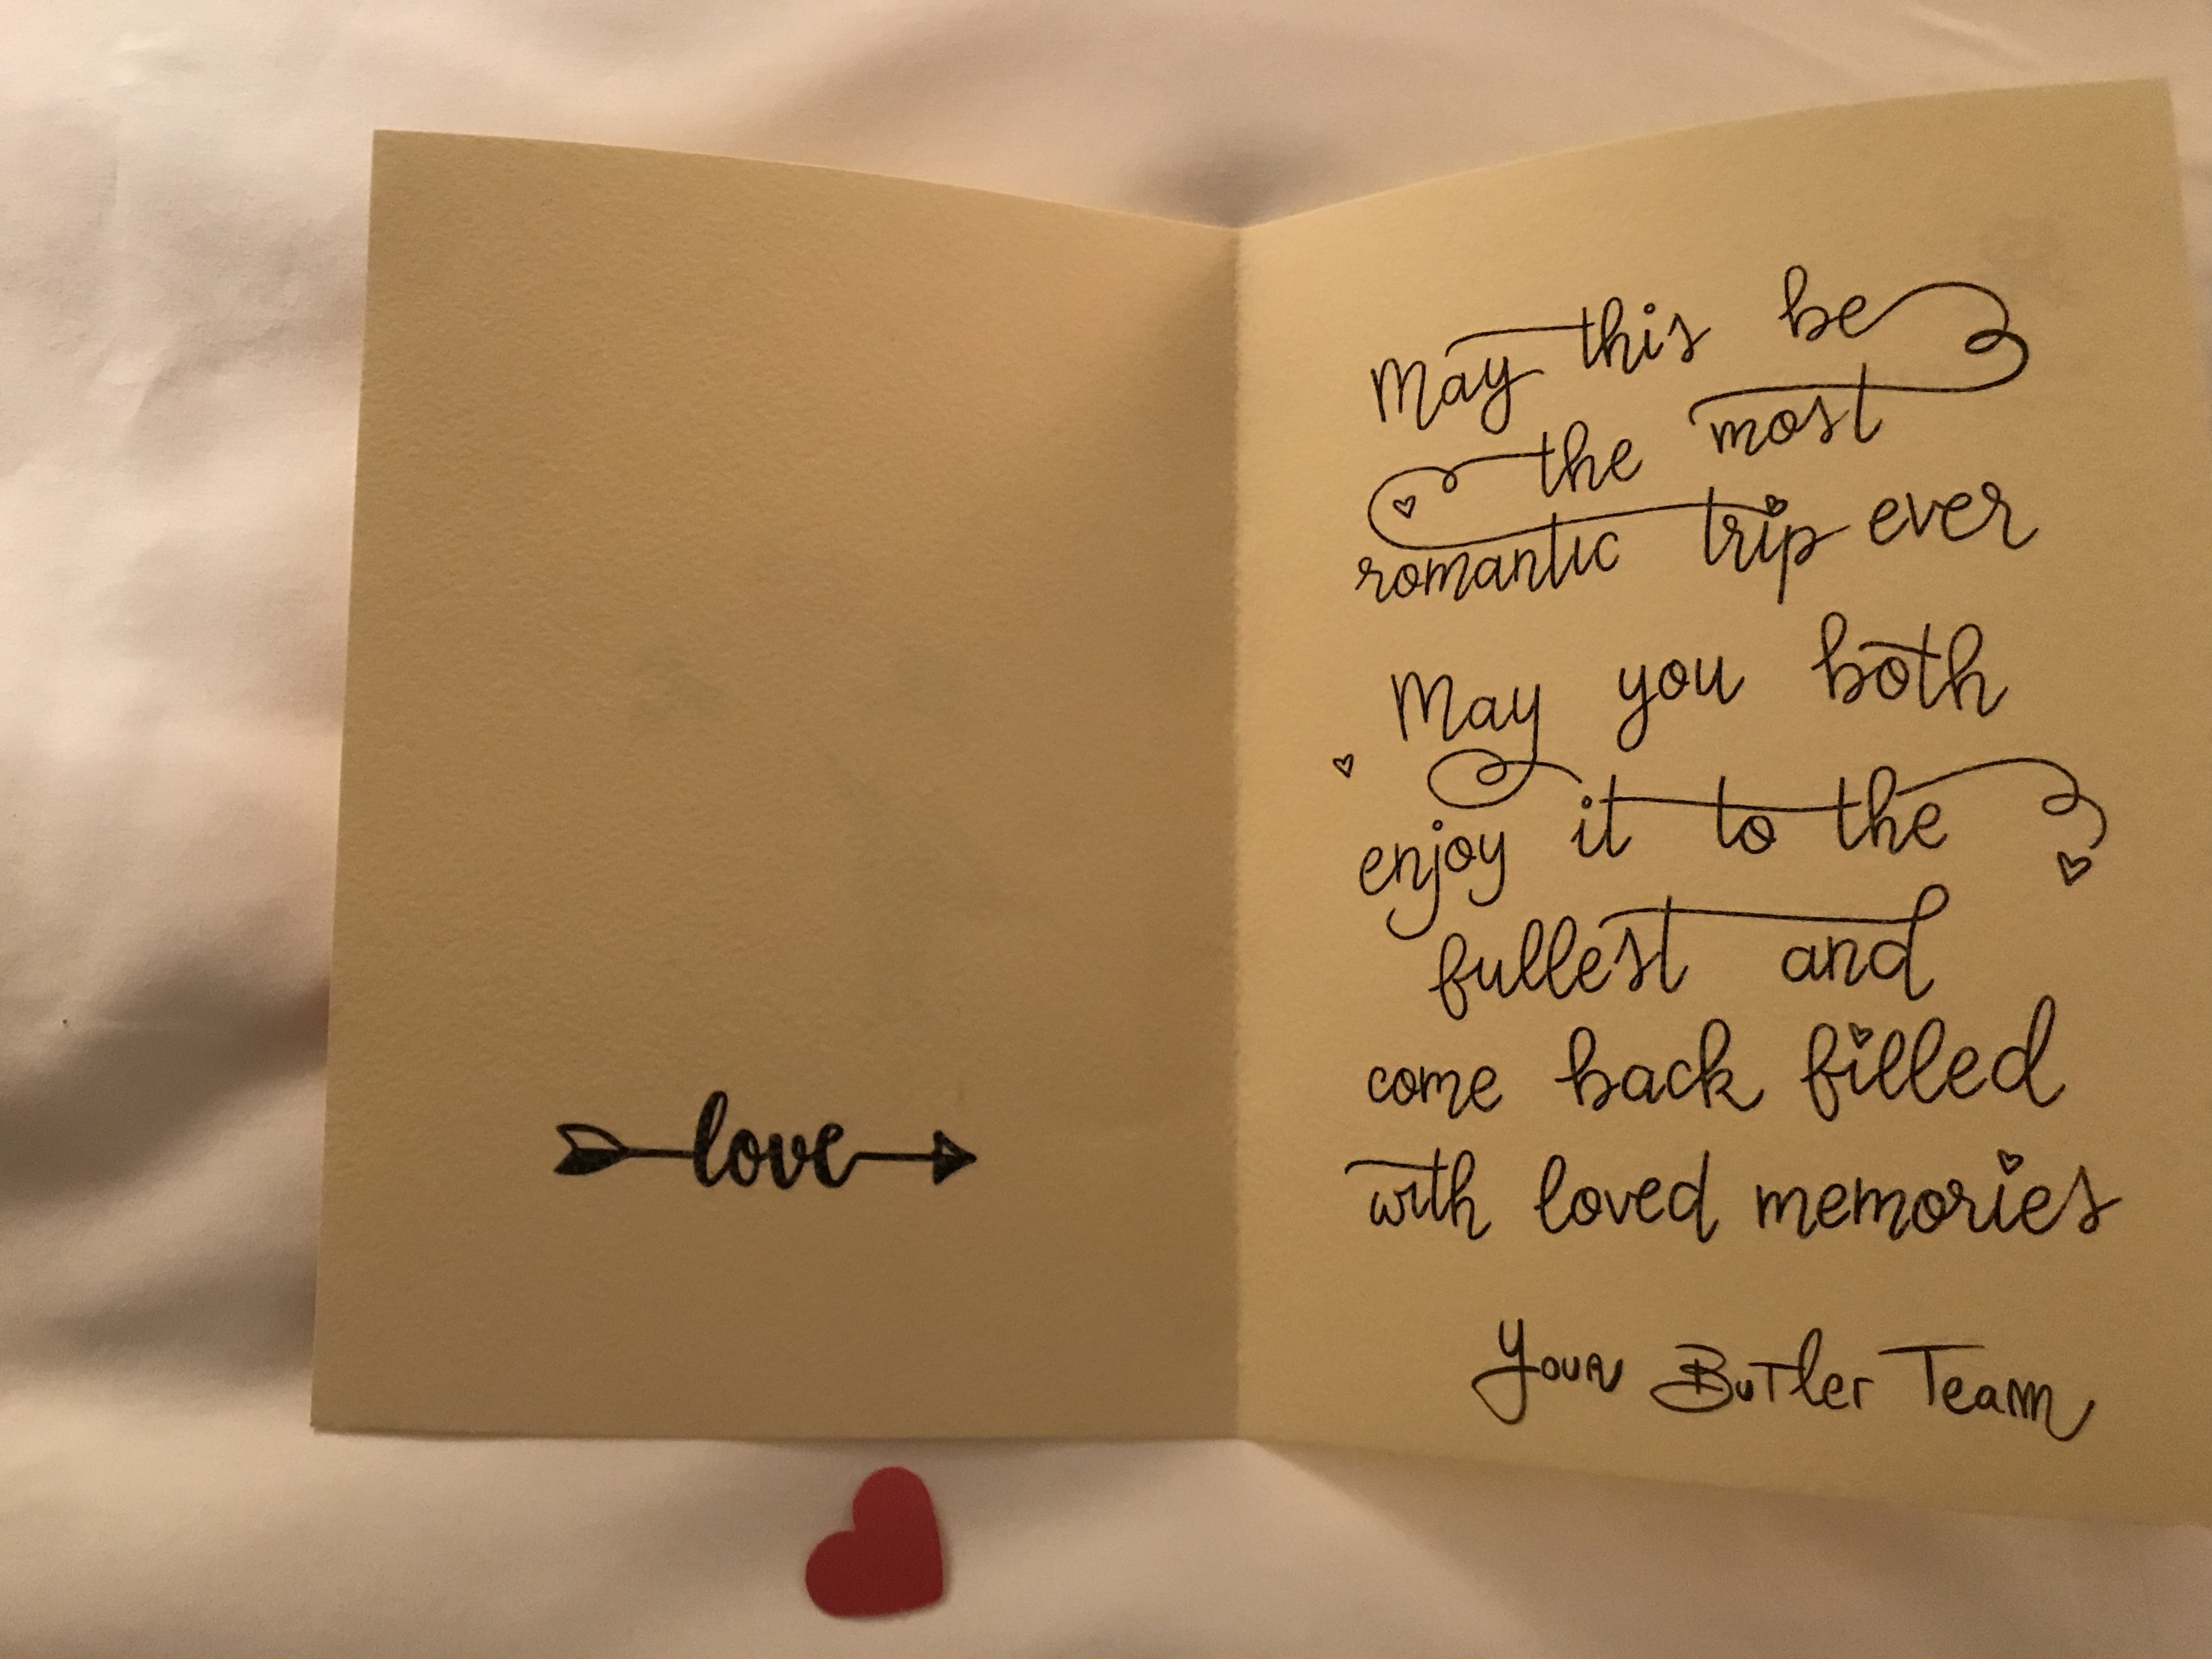 love
May this be
the most
romantic trip ever
May you both
enjoy it to the
fullest and
come back filled
with loved memories
Your Butler Team